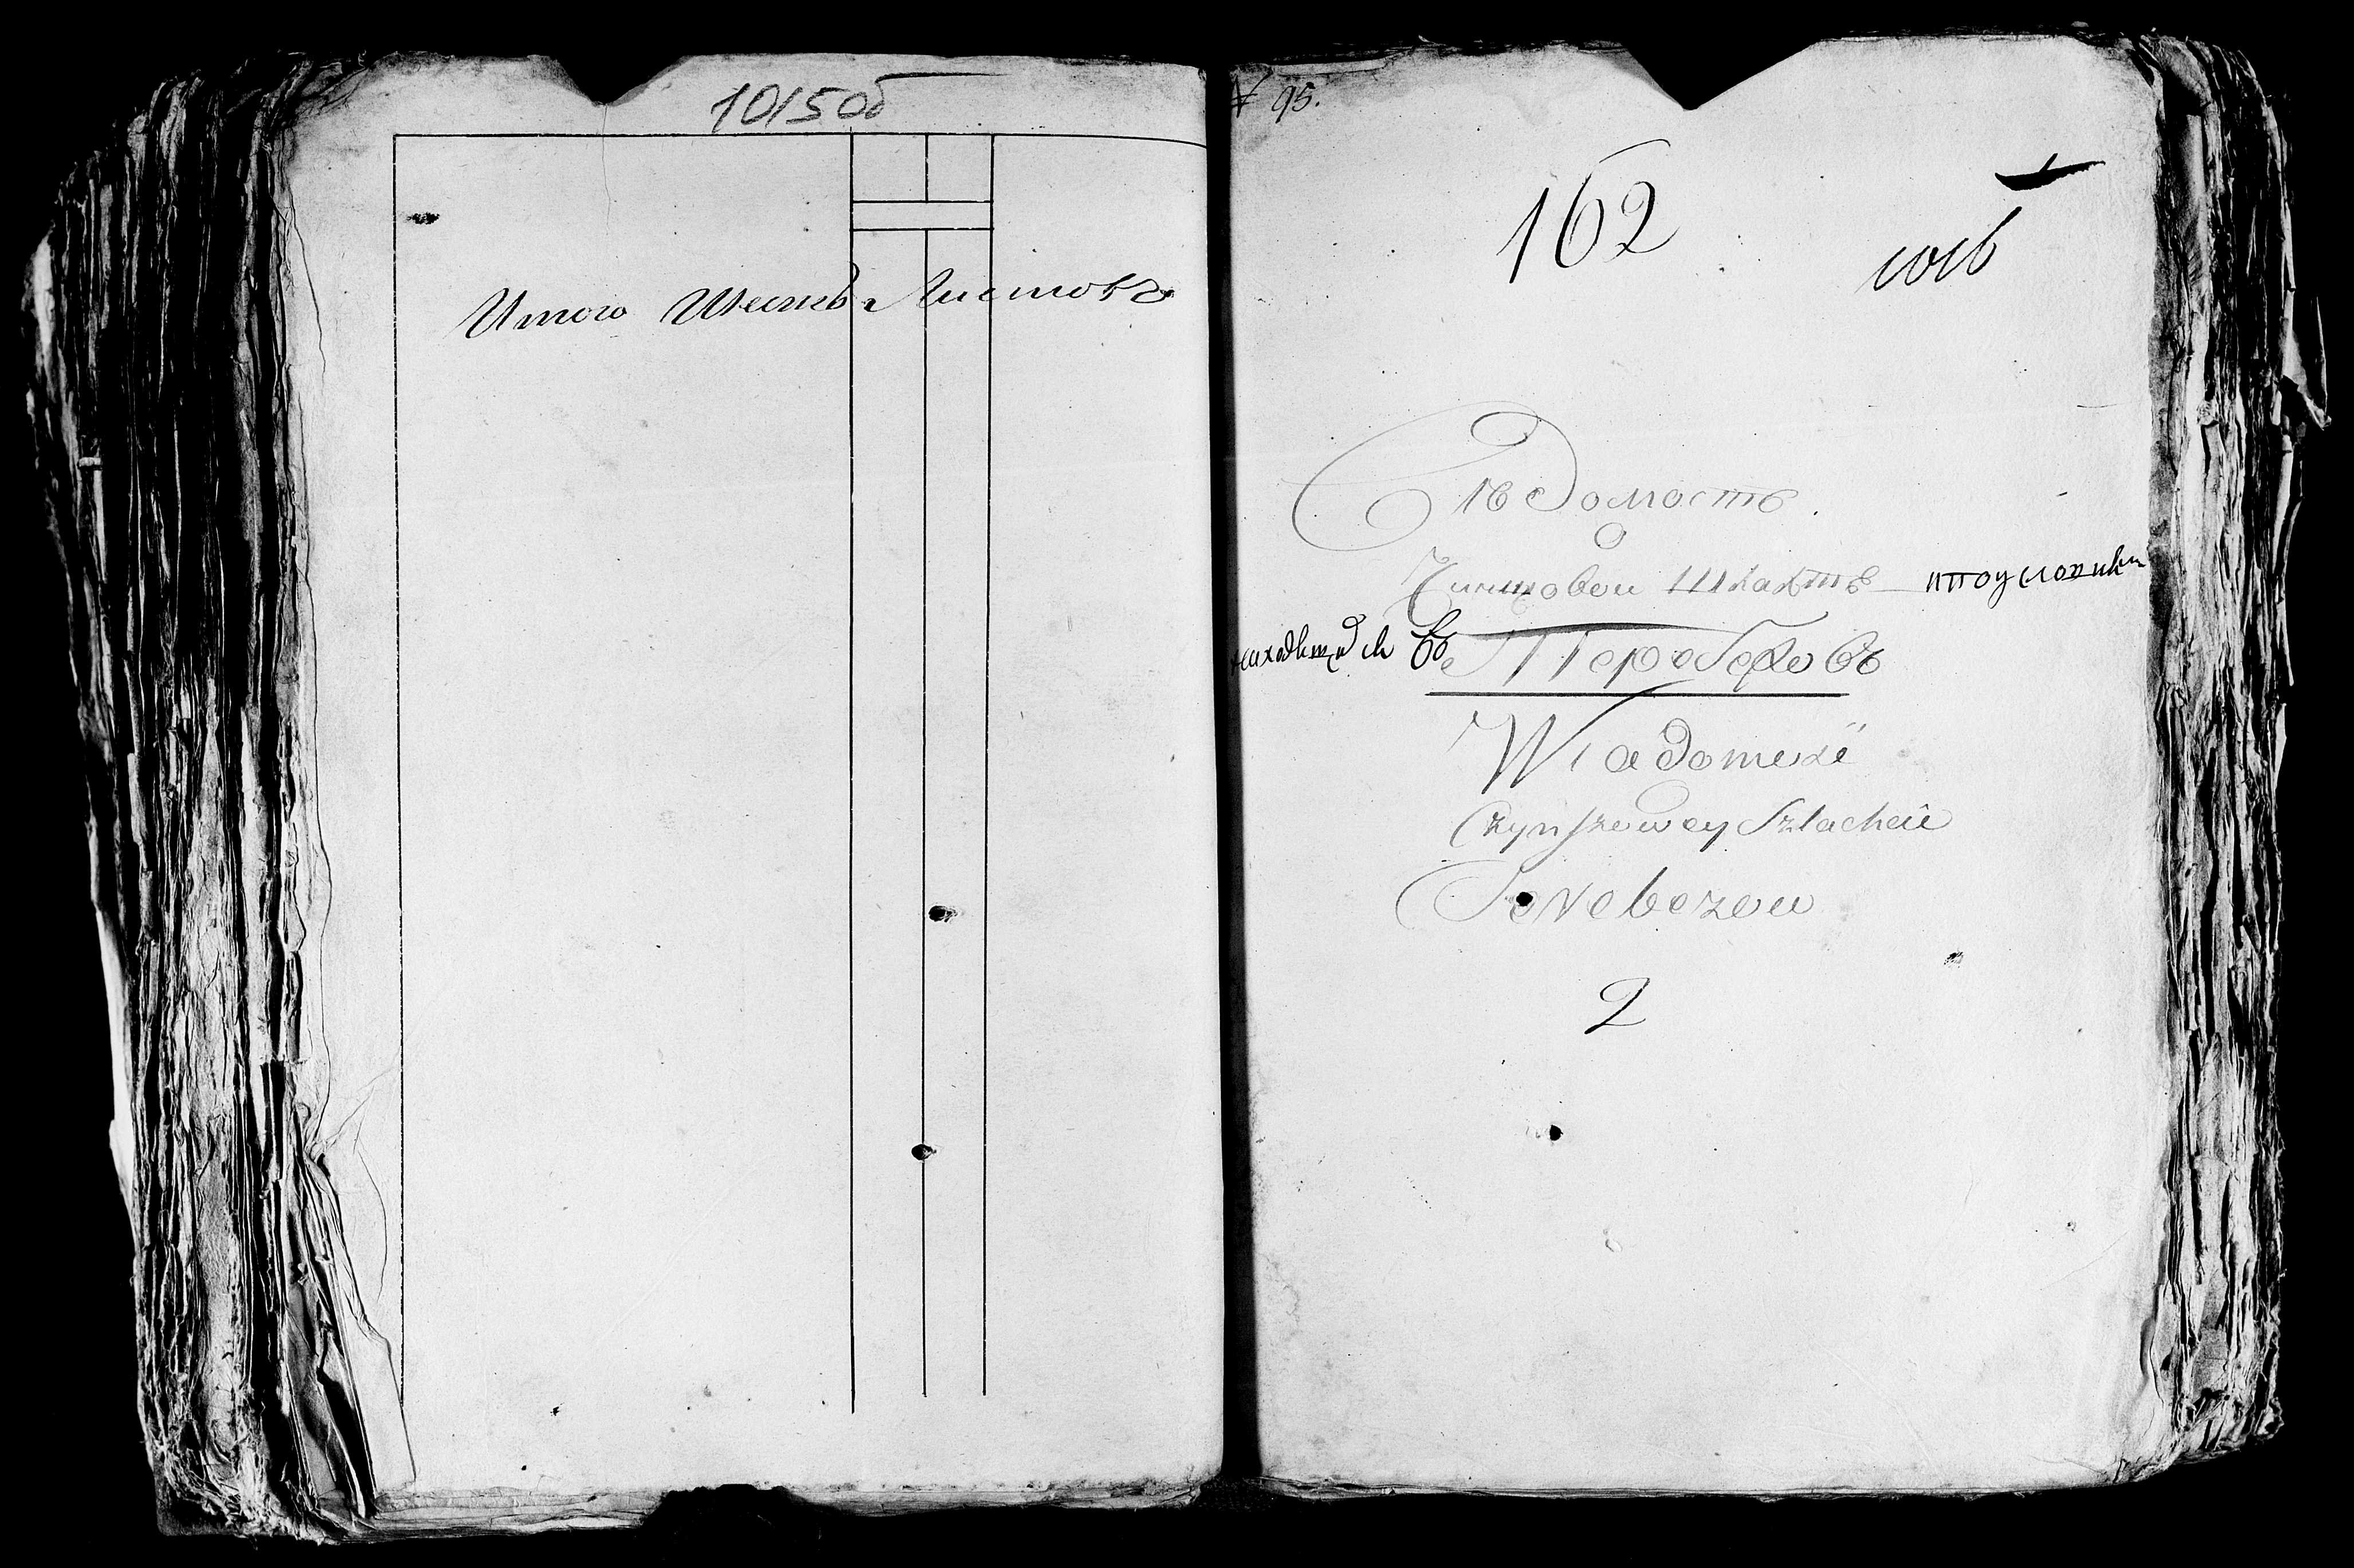 1015об
Итого Шесть Листовъ
№ 95.
162
1016
Вѣдомость
О
Чиншовой Шляхтѣ
въ Теребежовъ
Wiadomość
Czynszowey Szlachcie
Terebezow
2